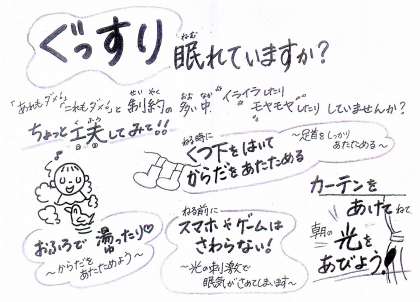 ぐっすり眠れていますか?
「あれもダメ」「これもダメ」と制約の多い中“イライラしたり
モヤモヤ”したりしていませんか?
ちょっと工夫してみて!!
おふろで湯ったり♡
～からだをあたためよう～
ねる時に
くつ下をはいて
からだをあたためる
～足首をしっかり
あたためる～
ねる前に
スマホやゲームは
さわらない!
～光の刺激で
眠気がさめてしまいます～
カーテンを
あけてねて
朝の光を
あびよう!